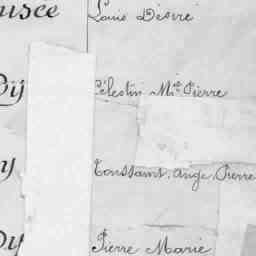 uisée Louis Désiré
Dij Célestin Mie Pierre
y Toussaint, Ange, Pierre
Dy Pierre Marie